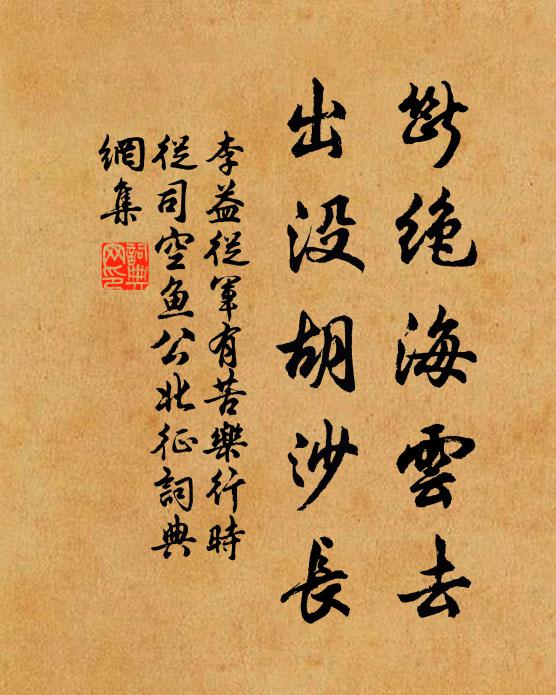 斷絕海雲去
出没胡沙長
李益從軍有苦樂行時
從司空魚公北征詞典
網集
詞典
网印